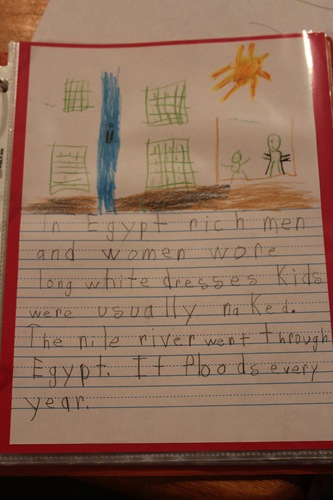 In Egypt rich men
and women wore
long white dresses Kids
were usually naked.
The nile river went through
Egypt. It floods every
year.